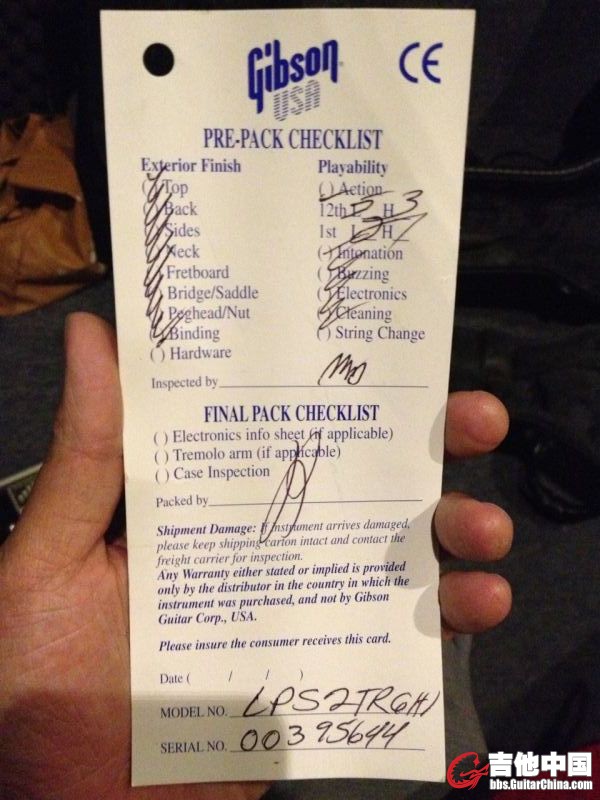 Gibson
USA
CE
PRE-PACK CHECKLIST
Exterior Finish
( ) Top
( ) Back
( ) Sides
( ) Neck
( ) Fretboard
( ) Bridge/Saddle
( ) Peghead/Nut
( ) Binding
( ) Hardware
Playability
( ) Action
12th L H 3
1st L H
( ) Intonation
( ) Buzzing
( ) Electronics
( ) Cleaning
( ) String Change
Inspected by
FINAL PACK CHECKLIST
( ) Electronics info sheet (if applicable)
( ) Tremolo arm (if applicable)
( ) Case Inspection
Packed by
Shipment Damage: If instrument arrives damaged,
please keep shipping carton intact and contact the
freight carrier for inspection.
Any Warranty either stated or implied is provided
only by the distributor in the country in which the
instrument was purchased, and not by Gibson
Guitar Corp., USA.
Please insure the consumer receives this card.
Date ( / / )
MODEL NO. LPS2TR6H1
SERIAL NO. 00395644
吉他中国
bbs.GuitarChina.com